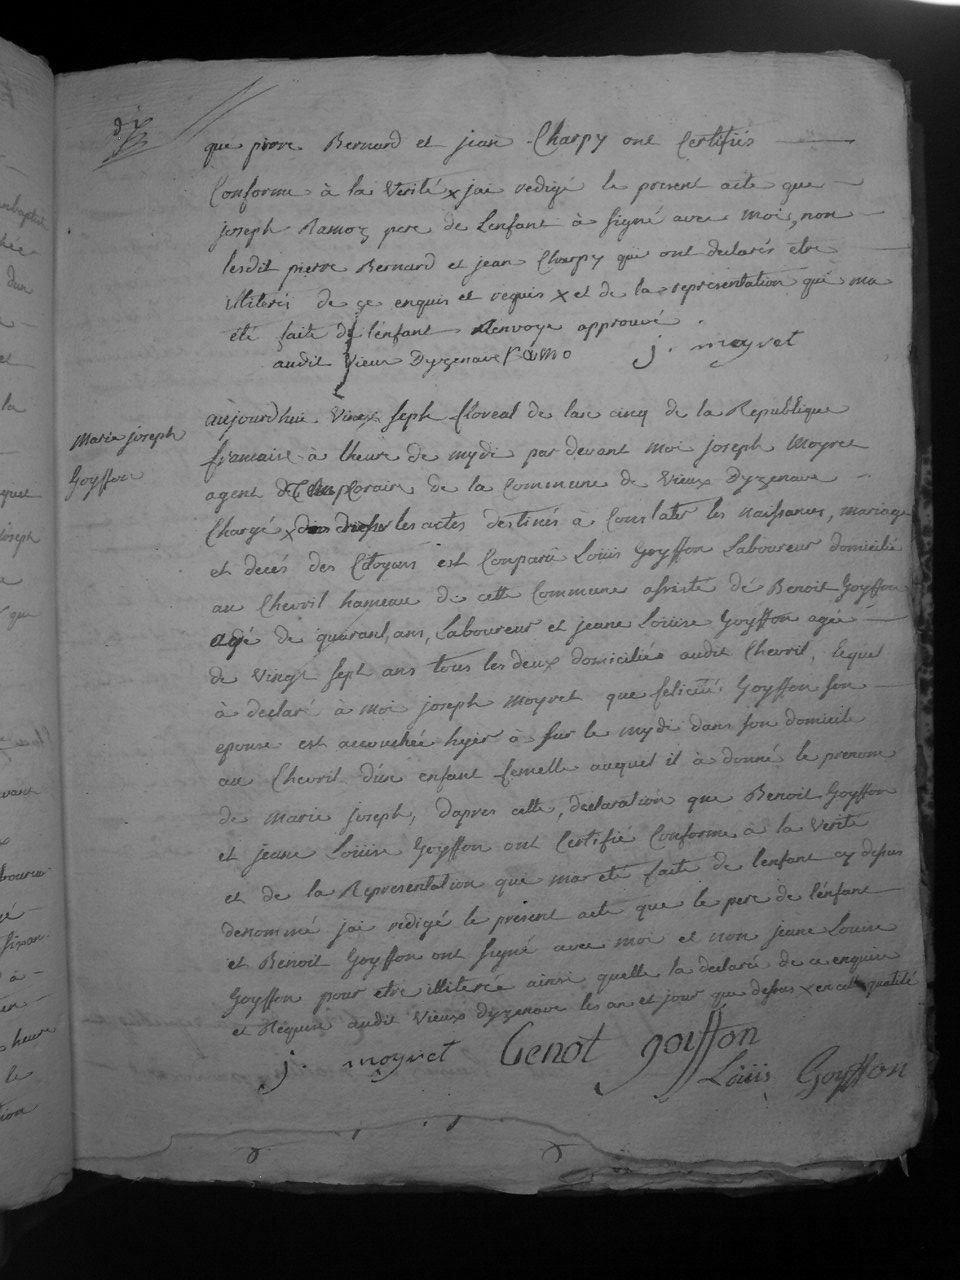 dix
que pierre Bernard et jean Charpy ont Certifiés
Conforme à la Verité x jai redigé le present acte que
joseph Ramoz pere de Lenfant à signé avec moi, non
lesdit pierre Bernard et jean Charpy qui ont declarés etre
illiterés de çe enquis et requis x et de la representation qui ma
été faite de lénfant Renvoye approuvé
audit Vieux Dyzenave Ramo j. moyret
Marie joseph
Goyffon
aujourdhui Vinx Seph floreal de lan cinq de la Republique
francaise à lheure de mydi par devant moi joseph Moyret
agent de la Commune de Vieux Dyzenave
Chargé x les actes destinés à Constater les Naissances, mariage
et decés des Citoyens est Comparu Louis Goyffon Laboureur domicilié
au Chevril hameau de cette Commune assisté de Benoit Goyffon
agé de quarant, ans, Laboureur et jeane Louise Goyffon agée
de Vingt Sept ans tous les deux domiciliés audit Chevril, lequel
à declaré à moi joseph Moyret que felicité Goyffon son
epouse est accouchée hyer à sur le mydi dans son domicile
au Chevril d'un enfant femelle auquel il à donné le prenom
de marie joseph, dapres cette, declaration que Benoit Goyffon
et jeane Louise Goyffon ont Certifié Conforme à la Verité
et de la Representation qui ma eté faite de lenfant cy dessus
denommé jai redigé le présent acte que le pere de lénfant
et Benoit Goyffon ont signé avec moi et non jeane Louise
Goyffon pour etre illiterée ainsi quelle la declaré de ce enquise
et Requise audit Vieux Dyzenave les an et jour que dessus x en cette qualité
j. moyret Genot goiffon
Louis Goyffon